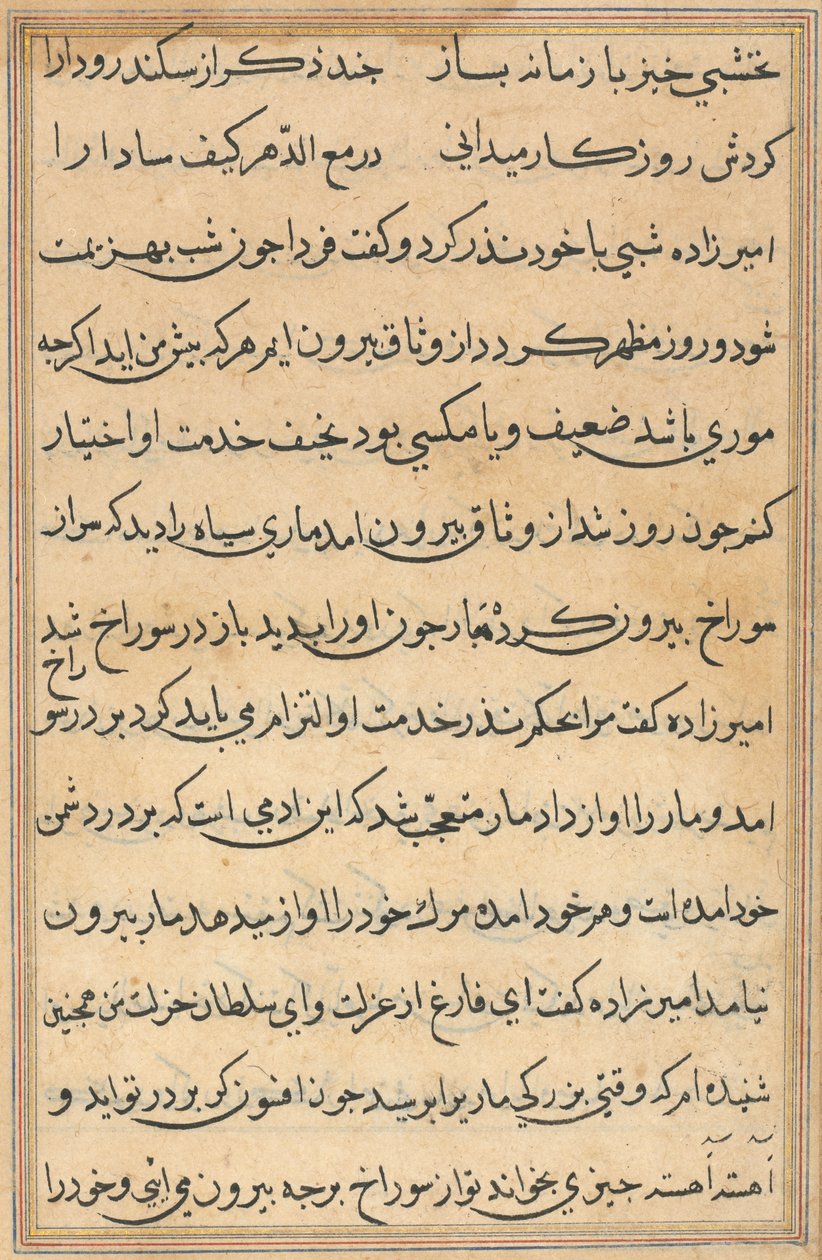 نخشبي خيز با زمانه بساز جند ذكر از سكندر و دارا
كردش روزكار ميداني در مع الدّهر كيف ما دارا
امير زاده شبي با خود نذر كرد و كفت فردا جون شب بهزيمت
شود و روز مظهر كردد از وثاق بيرون ايم هركه بيش من ايد اكرجه
موري باشد ضعيف ويا مكسي بود نحيف خدمت او اختيار
كنم جون روز شد از وثاق بيرون امد ماري سياه را ديد كه سر از
سوراخ بيرون كرده مار جون او را بديد باز در سوراخ شد
امير زاده كفت مرا بحكم نذر خدمت او التزام مي بايد كرد بر در سوراخ
امد و مار را اواز داد مار متعجّب شد كه اين ادمي است كه بر در دشمن
خود امده است و هم خود امده مرك خود را اواز ميدهد مار بيرون
نيامد امير زاده كفت اي فارغ از عزلت و اي سلطان خزلت من همجنين
شنيده ام كه وقتي بزركي ماريرا برسيد جون افسون كر بر در تو ايد و
آهسته آهسته جيزي بخواند تو از سوراخ برجه بيرون مي ائي و خود را